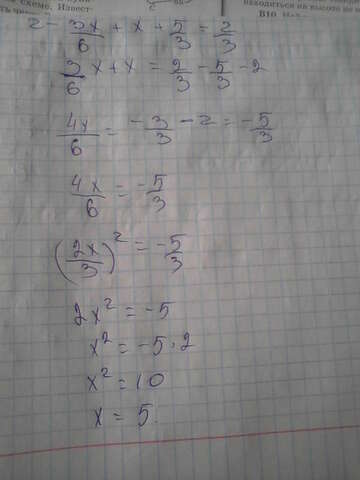 схеме. Извест-
находиться на высоте не
2 - 3x/6 + x + 5/3 = 2/3
3/6 x + x = 2/3 - 5/3 - 2
4x/6 = - 3/3 - 2 = - 5/3
4x/6 = - 5/3
(2x/3)² = - 5/3
2x² = -5
x² = -5 · 2
x² = 10
x = 5.